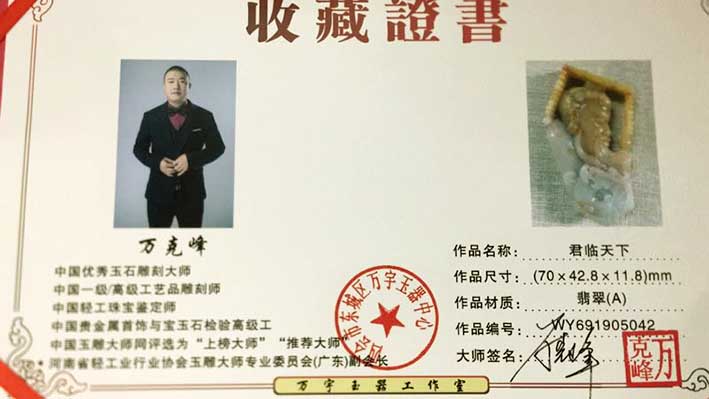 收藏證書
万克峰
中国优秀玉石雕刻大师
中国一级/高级工艺品雕刻师
中国轻工珠宝鉴定师
中国贵金属首饰与宝玉石检验高级工
中国玉雕大师网评选为“上榜大师”“推荐大师”
河南省轻工业行业协会玉雕大师专业委员会(广东)副会长
四会市东城区万宇玉器中心
作品名称： 君临天下
作品尺寸： (70×42.8×11.8)mm
作品材质： 翡翠(A)
作品编号： WY691905042
大师签名：
万克峰
万宇玉器工作室